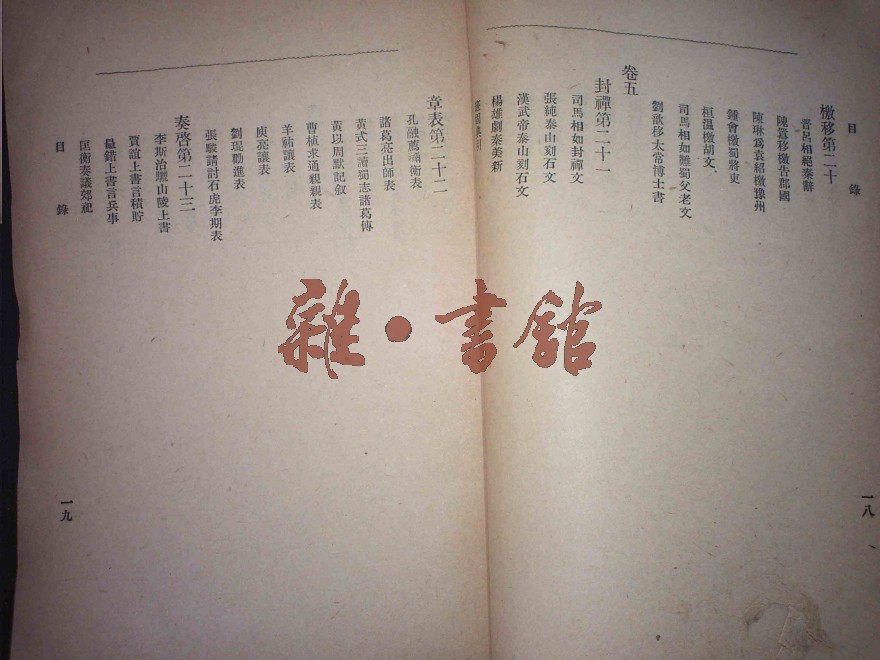 目錄
檄移第二十
晉呂相絕秦辭
隗囂移檄告郡國
陳琳爲袁紹檄豫州
鍾會檄蜀將吏
桓溫檄胡文
司馬相如難蜀父老文
劉歆移太常博士書
卷五
封禪第二十一
司馬相如封禪文
張純泰山刻石文
漢武帝泰山刻石文
楊雄劇秦美新
一八
章表第二十二
孔融薦禰衡表
諸葛亮出師表
黃式三讀蜀志諸葛傳
黃以周默記敍
曹植求通親親表
羊祜讓表
庾亮讓表
劉琨勸進表
張駿請討石虎李期表
奏啓第二十三
李斯治驪山陵上書
賈誼上書言積貯
鼂錯上書言兵事
匡衡奏議郊祀
目錄
一九
雜·書館